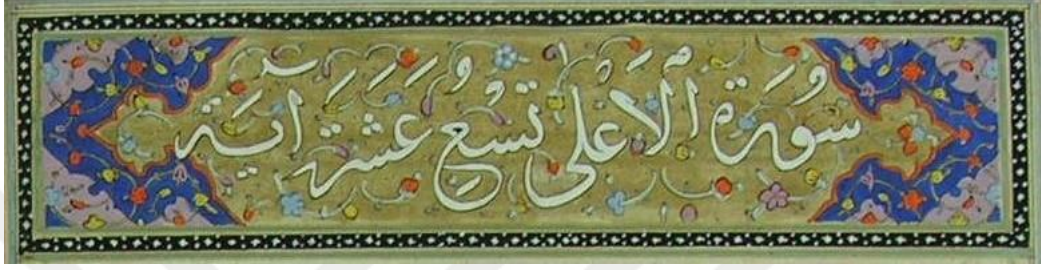 سُورَةُ الْأَعْلَى تِسْعُ عَشْرَةَ اٰيَةً